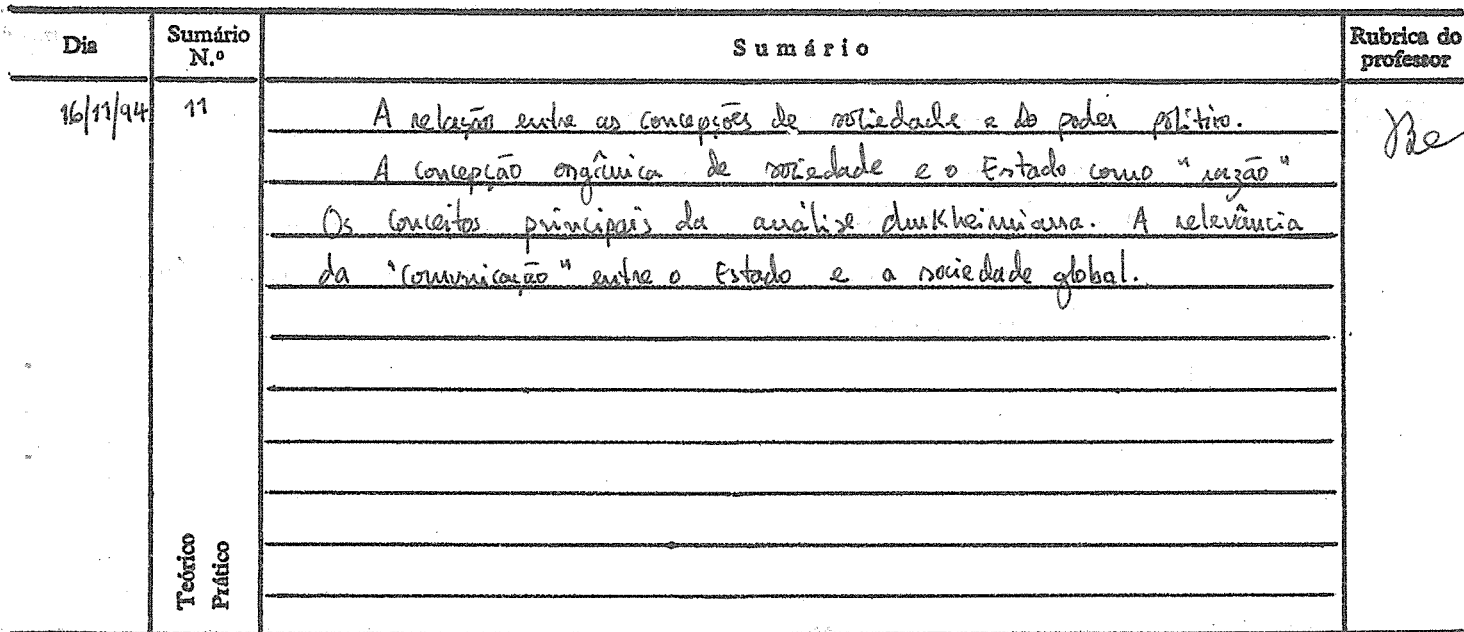 Dia
Sumário N.º
Sumário
Rubrica do professor
16/11/94
11
A relação entre as concepções de sociedade e do poder político.
A concepção orgânica de sociedade e o Estado como "razão"
Os conceitos principais da análise durkheimiana. A relevância
da "comunicação" entre o Estado e a sociedade global.
Teórico
Prático